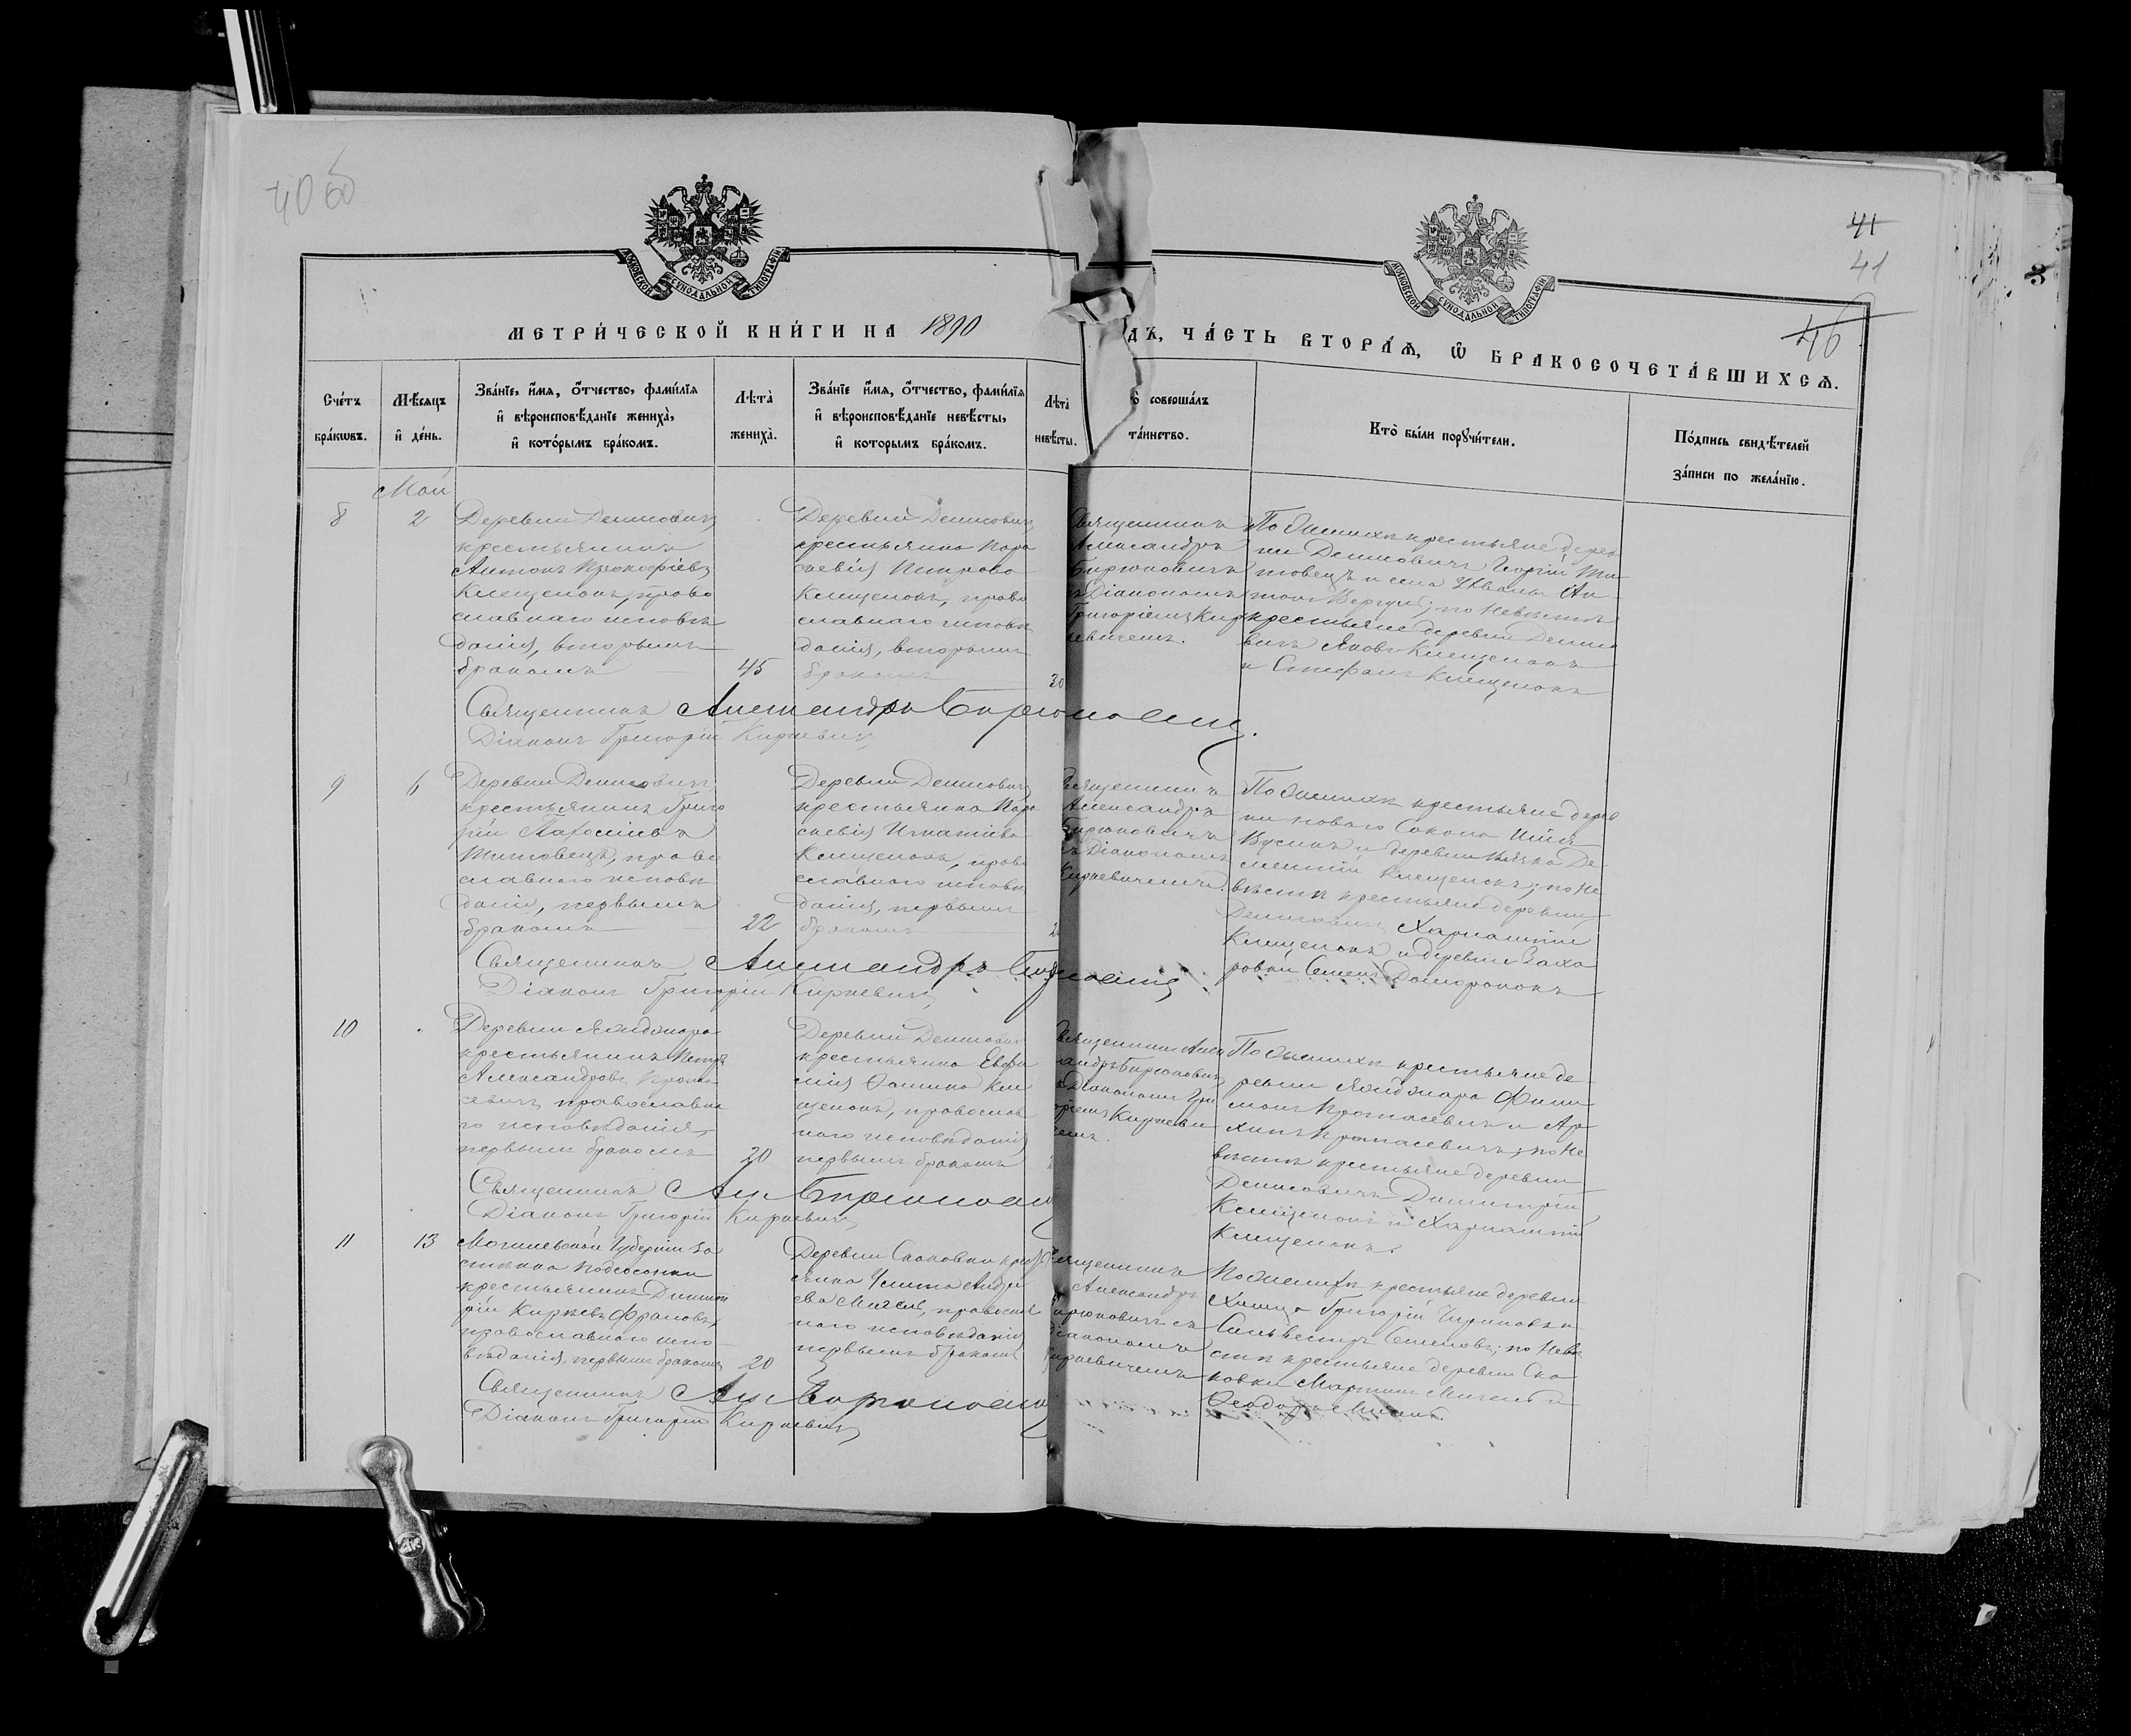 4060
41
41
46
МОСКОВСКОЙ СѴНОДАЛЬНОЙ ТИПОГРАФІИ
МОСКОВСКОЙ СѴНОДАЛЬНОЙ ТИПОГРАФІИ
МЕТРИ́ЧЕСКОЙ КНИ́ГИ НА 1890
ДЪ, ЧА́СТЬ ВТОРА́Ѧ, Ѡ҆ БРАКОСОЧЕТА́ВШИХСѦ.
Сче́тъ
бра́кѡвъ.
Мѣ́сѧцъ
и҆ де́нь.
Зва́нїе, и҆́мѧ, ѻ҆́тчество, фами́лїѧ
и҆ вѣроисповѣ́данїе жениха̀,
и҆ кото́рымъ бра́комъ.
Лѣта̀
жениха̀.
Зва́нїе и҆́мѧ, ѻ҆́тчество, фами́лїѧ
и҆ вѣроисповѣ́данїе невѣ́сты,
и҆ которымъ бра́комъ.
Лѣта̀
невѣ́сты.
совершалъ
та́инство.
Кто̀ бы́ли порꙋчи́тели.
По́дпись свидѣ́телей
за́писи по жела́нїю.
Май
8
2
Деревни Денисовичъ
крестьянинъ
Антонъ Прокофіевъ
Клещенокъ, право
славнаго исповѣ
данія, вторымъ
бракомъ
45
Деревни Денисовичъ
крестьянка Пара
скевія Петрова
Клещенокъ, право
славнаго исповѣ
данія, вторымъ
бракомъ
30
Священникъ
Александръ
Бирюковичъ
съ Діакономъ
Григоріемъ Кир
кевичемъ.
По Женихѣ крестьяне дерев
ни Денисовичъ Георгій Ти-
товецъ и села Ан-
тонъ; по Невѣстѣ
крестьяне деревни Денисо
вичъ Яковъ Клещенокъ
и Стефанъ Клещенокъ
Священникъ Александръ Бирюковичъ.
Діаконъ Григорій Киркевичъ
9
6
Деревни Денисовичъ
крестьянинъ Григо
рій
Титовецъ, право
славнаго исповѣ
данія, первымъ
бракомъ
22
Деревни Денисовичъ
крестьянка Пара
скевія Игнатіева
Клещенокъ, право
славнаго исповѣ
данія, первымъ
бракомъ
2
Священникъ
Александръ
Бирюковичъ
съ Діакономъ
Киркевичемъ.
По Женихѣ крестьяне дерев
ни Новаго Сокола Илія
и деревни Де-
ментій Клещенокъ; по Не
вѣстѣ крестьяне деревни
Денисовичъ Харлампій
Клещенокъ и деревни Заха
ровки Семенъ
Священникъ Александръ Бирюковичъ
Діаконъ Григорій Киркевичъ
10
Деревни
крестьянинъ Петръ
Александровъ Прота
севичъ, православна
го исповѣданія,
первымъ бракомъ
20
Деревни Денисовичъ
крестьянка Евфи
мія Ѳомина Кле
щенокъ, православ
наго исповѣданія
первымъ бракомъ
2
Священникъ Алек
андръ Бирюковичъ
съ Діакономъ Гри
оріемъ Киркеви
чемъ.
По Женихѣ крестьяне де-
ревни Фили
монъ Протасевичъ и Ар-
хипъ Протасевичъ; по Не
вѣстѣ крестьяне деревни
Денисовичъ Димитрій
Клещенокъ и Харлампій
Клещенокъ.
Священникъ Ал. Бирюкович
Діаконъ Григорій Киркевичъ
11
13
Могилевской Губерніи за
стѣнка Подсосонки
крестьянинъ Димит
рій
православнаго испо
вѣданія, первымъ бракомъ
20
Деревни Скаковки крест
янка Улита Андре
ева, православ
наго исповѣданія
первымъ бракомъ
Священникъ
Александръ
Бирюковичъ съ
Діакономъ
Киркевичемъ
По Женихѣ крестьяне деревни
Григорій и
Сильвестръ Семеновъ; по Невѣ
стѣ крестьяне деревни Ска
ковки Мартинъ и
Ѳеодоръ
Священникъ Ал. Бирюкович
Діаконъ Григорій Киркевичъ